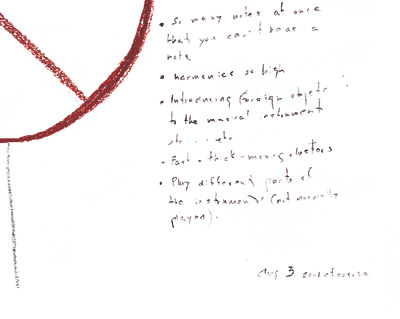 • So many notes at once
that you can't hear a
note
• harmonics so high
• Introducing foreign objects
to the musical instrument
etc.... etc.
- Fast - thick - moving clusters
• Play different parts of
the instruments (not normally
played).
3